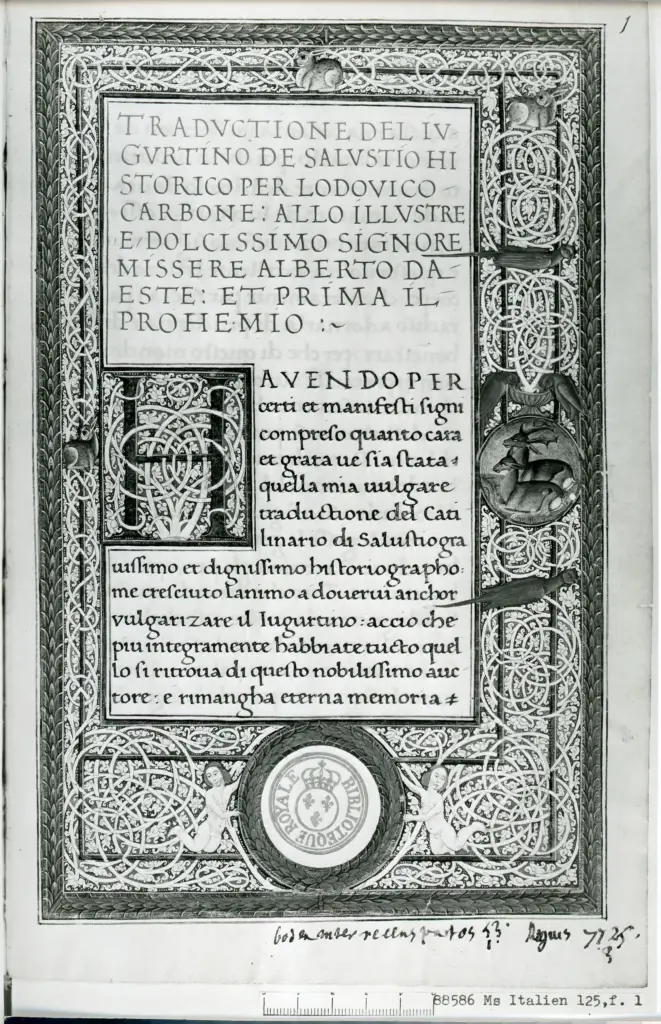 1
TRADVCTIONE DEL IV
GVRTINO DE SALVSTIO HI
STORICO PER LODOVICO
CARBONE: ALLO ILLVSTRE
E/DOLCISSIMO SIGNORE
MISSERE ALBERTO DA
ESTE: ET PRIMA IL
PROHEMIO :~
HAVENDO PER
certi et manifesti signi
compreso quanto cara
et grata ue sia stata
quella mia uulgare
traductione del Cati
linario di Salustio gra
uissimo et dignissimo historiographo:
me cresciuto lanimo a douerui anchor
vulgarizare il Iugurtino: accio che
piu integramente habbiate tucto quel
lo si ritroua di questo nobilissimo auc
tore: e rimangha eterna memoria
BIBLIOTEQUE ROYALE
Regius 7725.
3
88586 Ms Italien 125,f. 1